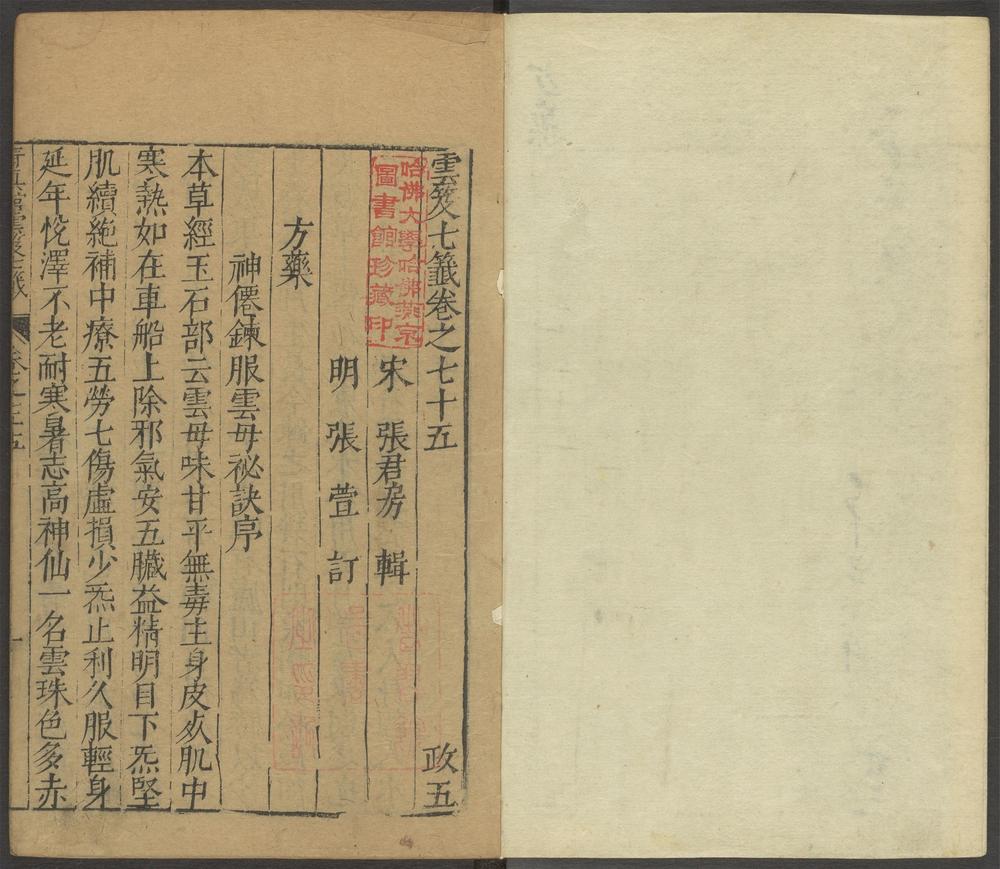 雲笈七籤卷之七十五　政五
哈佛大學哈佛燕京
圖書館珍藏印
宋　張君房　輯
明　張　萱　訂
方藥
神僊鍊服雲母祕訣序
本草經玉石部云雲母味甘平無毒主身皮死肌中
寒熱如在車船上除邪氣安五臟益精明目下炁堅
肌續絶補中療五勞七傷虛損少炁止利久服輕身
延年恱澤不老耐寒暑志高神仙一名雲珠色多赤
卷之七十五
一